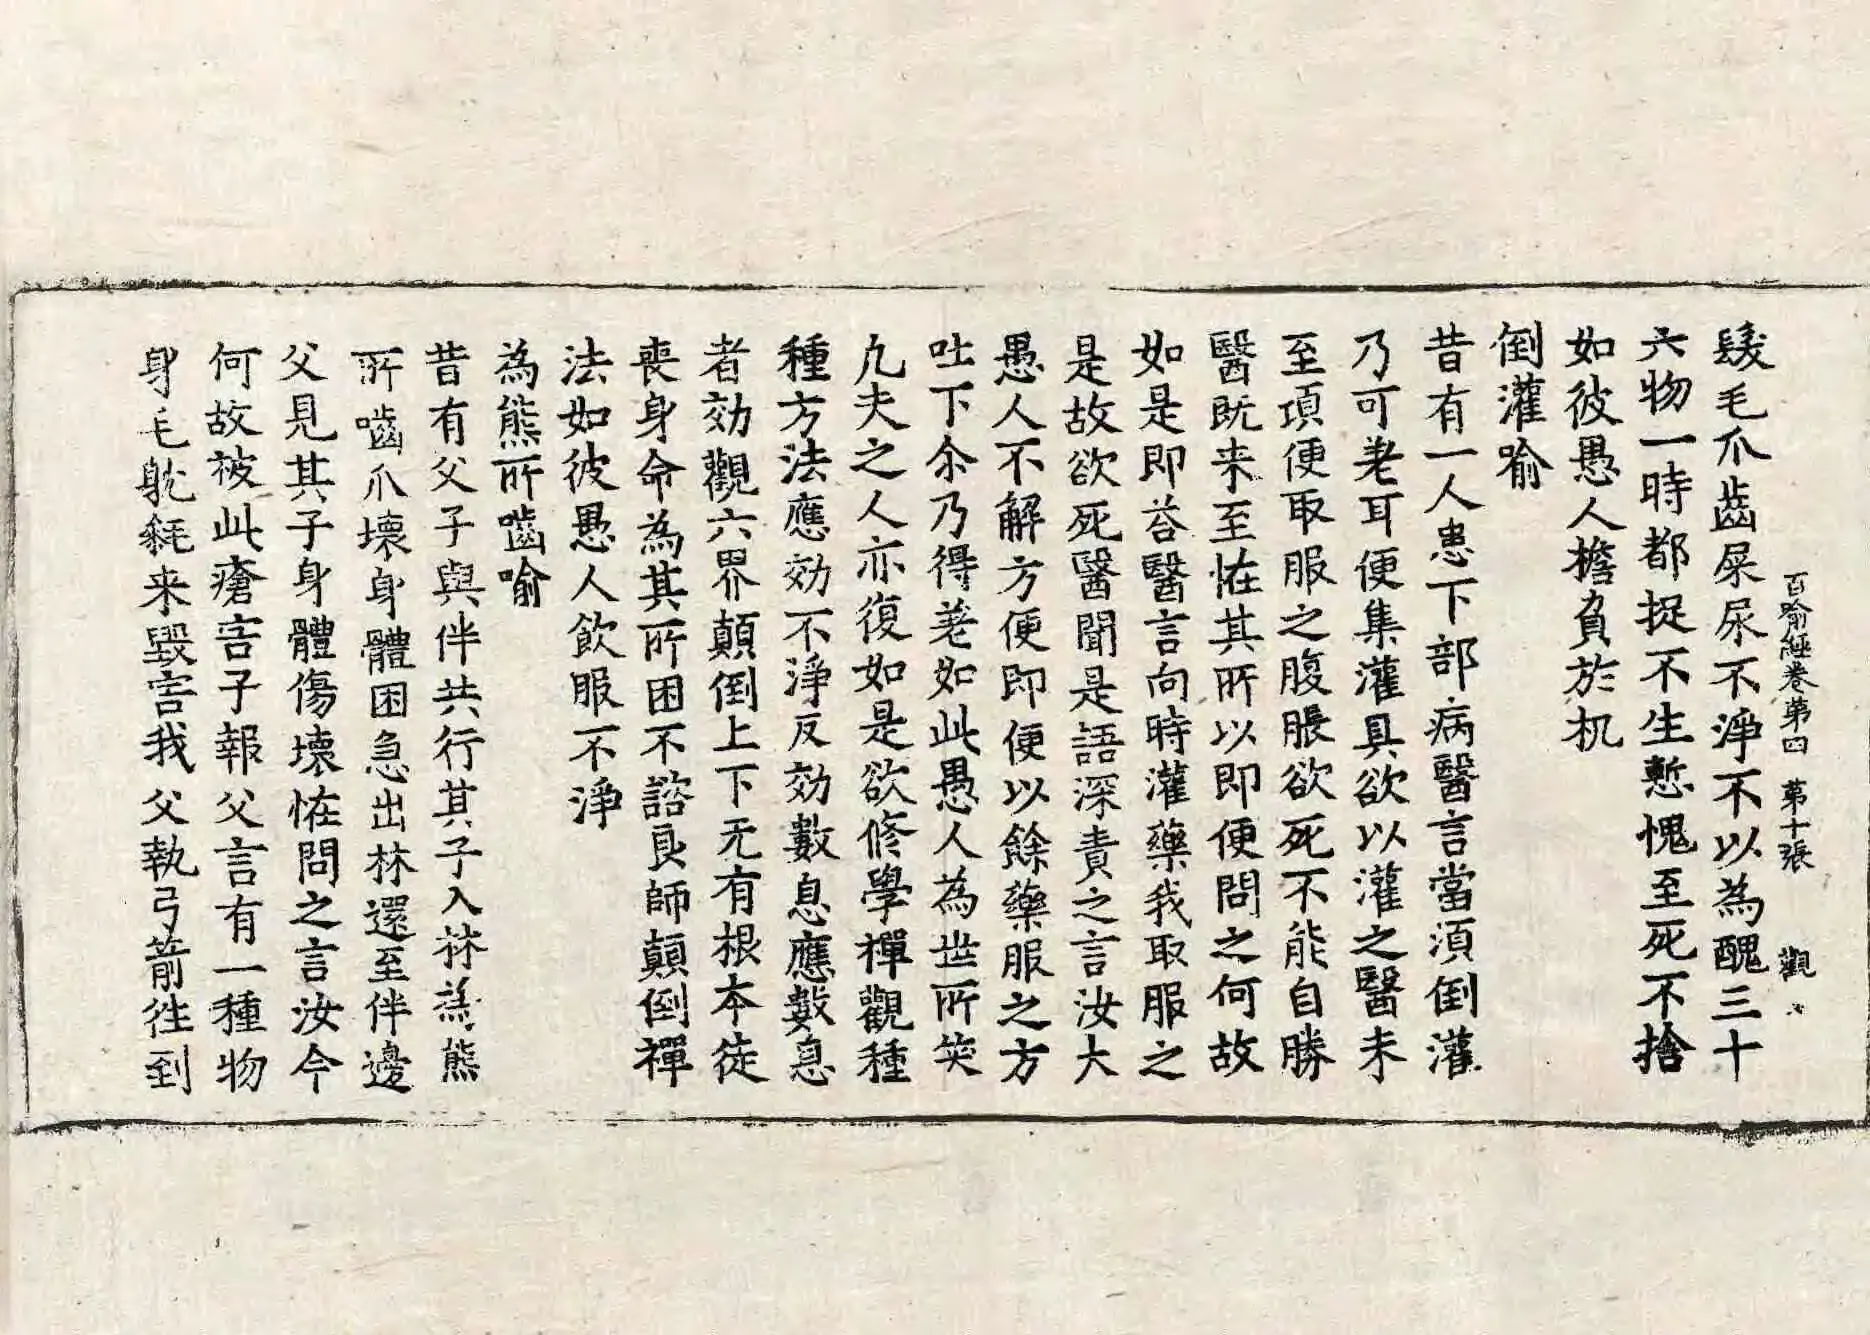 百喻經卷第四 第十張 觀
髮毛爪齒屎尿不淨不以為醜三十
六物一時都捉不生慙愧至死不捨
如彼愚人擔負於机
倒灌喻
昔有一人患下部病醫言當須倒灌
乃可差耳便集灌具欲以灌之醫未
至頃便取服之腹脹欲死不能自勝
醫既来至恠其所以即便問之何故
如是即荅醫言向時灌藥我取服之
是故欲死醫聞是語深責之言汝大
愚人不解方便即便以餘藥服之方
吐下尒乃得差如此愚人為世所笑
凡夫之人亦復如是欲修學禪觀種
種方法應効不淨反効數息應數息
者効觀六界顛倒上下无有根本徒
喪身命為其所困不諮良師顛倒禪
法如彼愚人飲服不淨
為熊所嚙喻
昔有父子與伴共行其子入林為熊
所嚙爪壞身體困急出林還至伴邊
父見其子身體傷壞恠問之言汝今
何故被此瘡害子報父言有一種物
身毛躭毵来毀害我父執弓箭往到